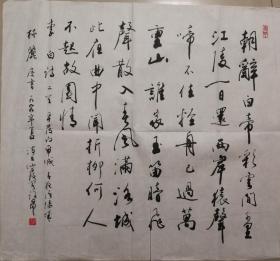 朝辭白帝彩雲間千里
江陵一日還兩岸猿聲
啼不住輕舟已過萬
重山誰家玉笛暗飛
聲散入春風滿洛城
此夜曲中聞折柳何人
不起故園情
李白詩二首早發白帝城